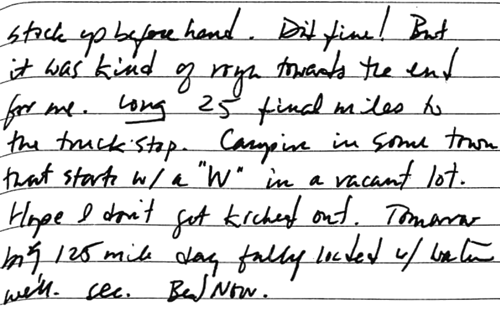 stock up before hand. Did fine! But
it was kind of rough towards the end
for me. Long 25 final miles to
the truck stop. Camping in some town
that starts w/ a "W" in a vacant lot.
Hope I don't get kicked out. Tomorrow
big 125 mile day fully loaded w/ water
we'll. see. Bed Now.